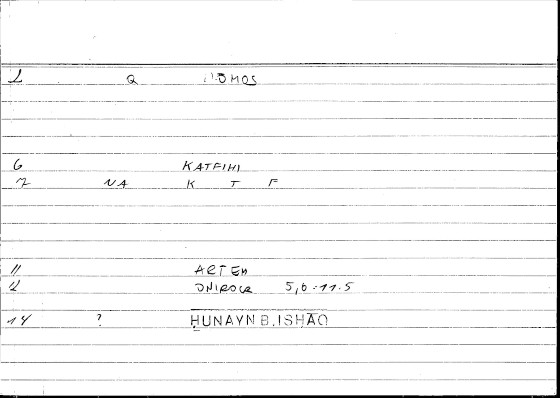 1 Q NOMOS
6 KATFIHI
7 NA K T F
11 ARTEM
12 ONIROCR 5,6-11.5
14 ? ḤUNAYN B. ISḤĀQ